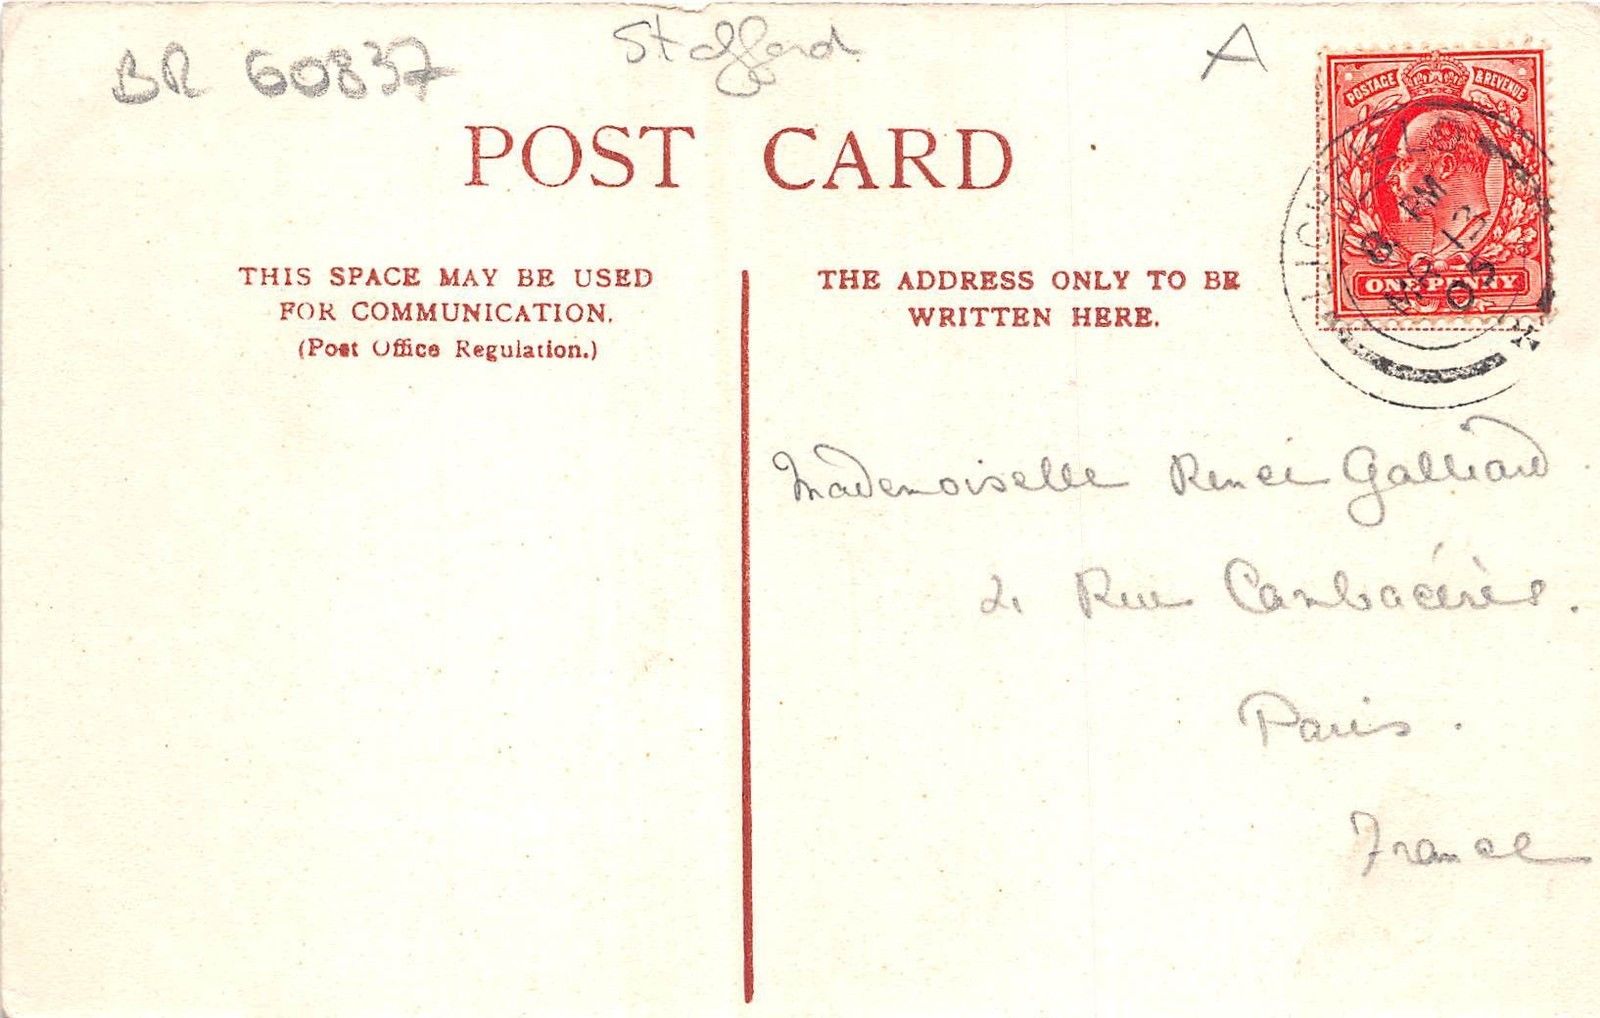 BR 60837
Stafford
A
POSTAGE & REVENUE
ONE PENNY
LICHFIELD
8 PM
13
05
POST CARD
THIS SPACE MAY BE USED
FOR COMMUNICATION.
(Post Office Regulation.)
THE ADDRESS ONLY TO BE
WRITTEN HERE.
Mademoiselle Renée Galliard
2, Rue Cambacérès.
Paris.
France